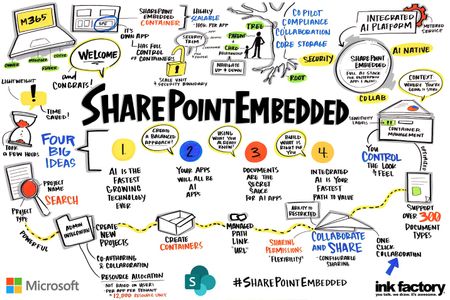 M365
SPE
SHAREPOINT
EMBEDDED
CONTAINER
IT'S OWN
APP
HAS FULL
CONTROL OF
CONTAINERS
HIGHLY
SCALABLE
100K PER APP
SECURITY
TRIM
SCALE UNIT
+ SECURITY BOUNDARY
TREE
PARENT
CHILD
NAVIGATE
UP + DOWN
SECURITY
ROOT
COPILOT
COMPLIANCE
COLLABORATION
CORE STORAGE
INTEGRATED
AI PLATFORM
METERED
SERVICE
AI NATIVE
SHAREPOINT
EMBEDDED
COLLAB
CONTEXT:
WHERE YOU'RE
DOING IT
LIGHTWEIGHT!
WELCOME
and
CONGRATS!
SHAREPOINT EMBEDDED
TIME SAVED!
TOOK A
FEW HOURS
FOUR
BIG
IDEAS
CREATE
A BALANCED
APPROACH!
USING
WHAT YOU
ALREADY
KNOW!
BUILD
WHAT IS
RIGHT FOR
YOU!
1
AI IS THE
FASTEST
GROWING
TECHNOLOGY
EVER
2
YOUR APPS
WILL ALL BE
AI
APPS
3
DOCUMENTS
ARE THE
SECRET
SAUCE
FOR AI APPS
4
INTEGRATED
AI IS YOUR
FASTEST
PATH TO VALUE
SENSITIVITY
LABELS
CONTAINER
MANAGEMENT
YOU
CONTROL
THE LOOK
& FEEL
PROJECT
NAME
SEARCH
PROJECT
TYPE
POWERFUL
ADMIN
CREATE
NEW
PROJECTS
CO-AUTHORING
& COLLABORATION
RESOURCE ALLOCATION
NOT BASED ON USERS
PER APP PER TENANT
CREATE
CONTAINERS
MANAGED
PATH
LINK
URL
SHARING
PERMISSIONS
"FLEXIBILITY"
ABILITY TO
RESTRICTED
COLLABORATE
AND SHARE
-CONFIGURABLE
SHARING
ONE
CLICK
COLLABORATION
SUPPORT
OVER 300
DOCUMENT
TYPES
Microsoft
S
#SHAREPOINTEMBEDDED
ink factory
you talk. we draw. it's awesome.